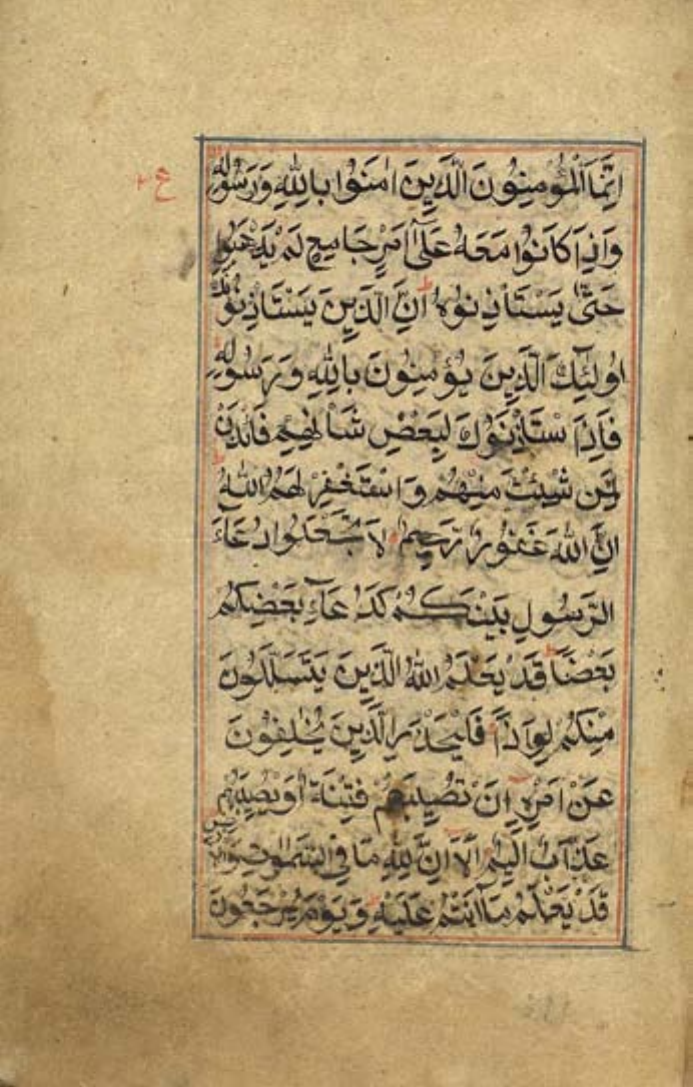 ع
اِنَّمَا الْمُؤْمِنُونَ الَّذِينَ اٰمَنُوا بِاللّٰهِ وَرَسُولِهِ
وَاِذَا كَانُوا مَعَهُ عَلٰٓى اَمْرٍ جَامِعٍ لَمْ يَذْهَبُوا
حَتّٰى يَسْتَاْذِنُوهُ ط اِنَّ الَّذِينَ يَسْتَاْذِنُونَكَ
اُولٰٓئِكَ الَّذِينَ يُؤْمِنُونَ بِاللّٰهِ وَرَسُولِهِ
فَاِذَا اسْتَاْذَنُوكَ لِبَعْضِ شَاْنِهِمْ فَاْذَنْ
لِمَنْ شِئْتَ مِنْهُمْ وَاسْتَغْفِرْ لَهُمُ اللّٰهَ
اِنَّ اللّٰهَ غَفُورٌ رَحِيمٌ لَا تَجْعَلُوا دُعَآءَ
الرَّسُولِ بَيْنَكُمْ كَدُعَآءِ بَعْضِكُمْ
بَعْضًا ط قَدْ يَعْلَمُ اللّٰهُ الَّذِينَ يَتَسَلَّلُونَ
مِنْكُمْ لِوَاذًا فَلْيَحْذَرِ الَّذِينَ يُخَالِفُونَ
عَنْ اَمْرِهِ اَنْ تُصِيبَهُمْ فِتْنَةٌ اَوْ يُصِيبَهُمْ
عَذَابٌ اَلِيمٌ اَلَا اِنَّ لِلّٰهِ مَا فِى السَّمٰوٰتِ وَالْاَرْضِ
قَدْ يَعْلَمُ مَآ اَنْتُمْ عَلَيْهِ ط وَيَوْمَ يُرْجَعُونَ